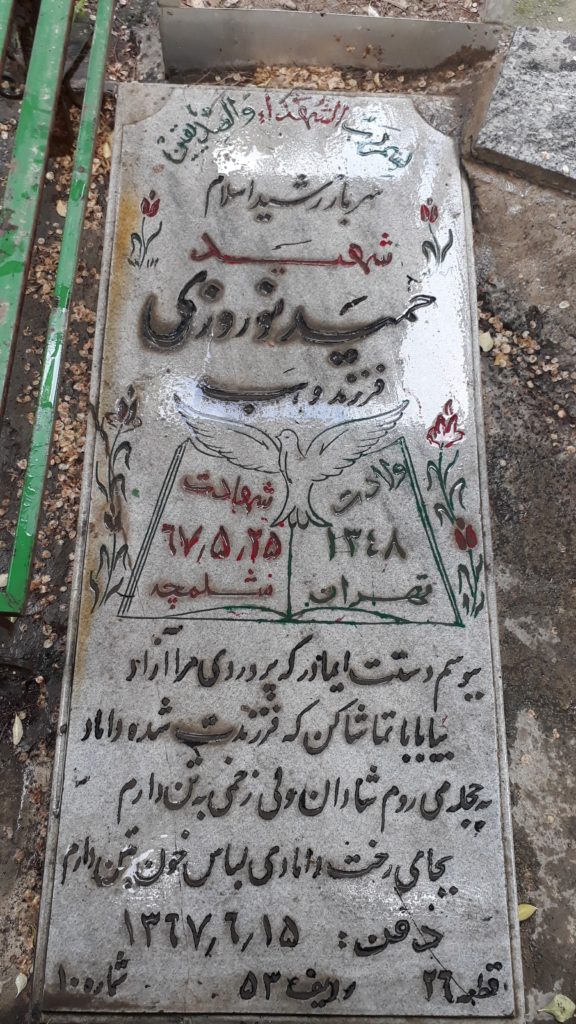 بسم رب الشهداء والصدیقین
سرباز رشید اسلام
شهید
حمید نوروزی
فرزند وهب
ولادت
۱۳۴۸
تهران
شهادت
۶۷٫۵٫۲۵
شلمچه
ببوسم دستت ایمادر که پروردی مرا آزاد
بیا بابا تماشا کن که فرزندت شده داماد
به حجله می روم شادان ولی زخمی به تن دارم
بجای رخت دامادی لباس خون بتن دارم
دفن: ۱۳۶۷٫۶٫۱۵
قطعه ۲۶ ردیف ۵۳ شماره ۱۰